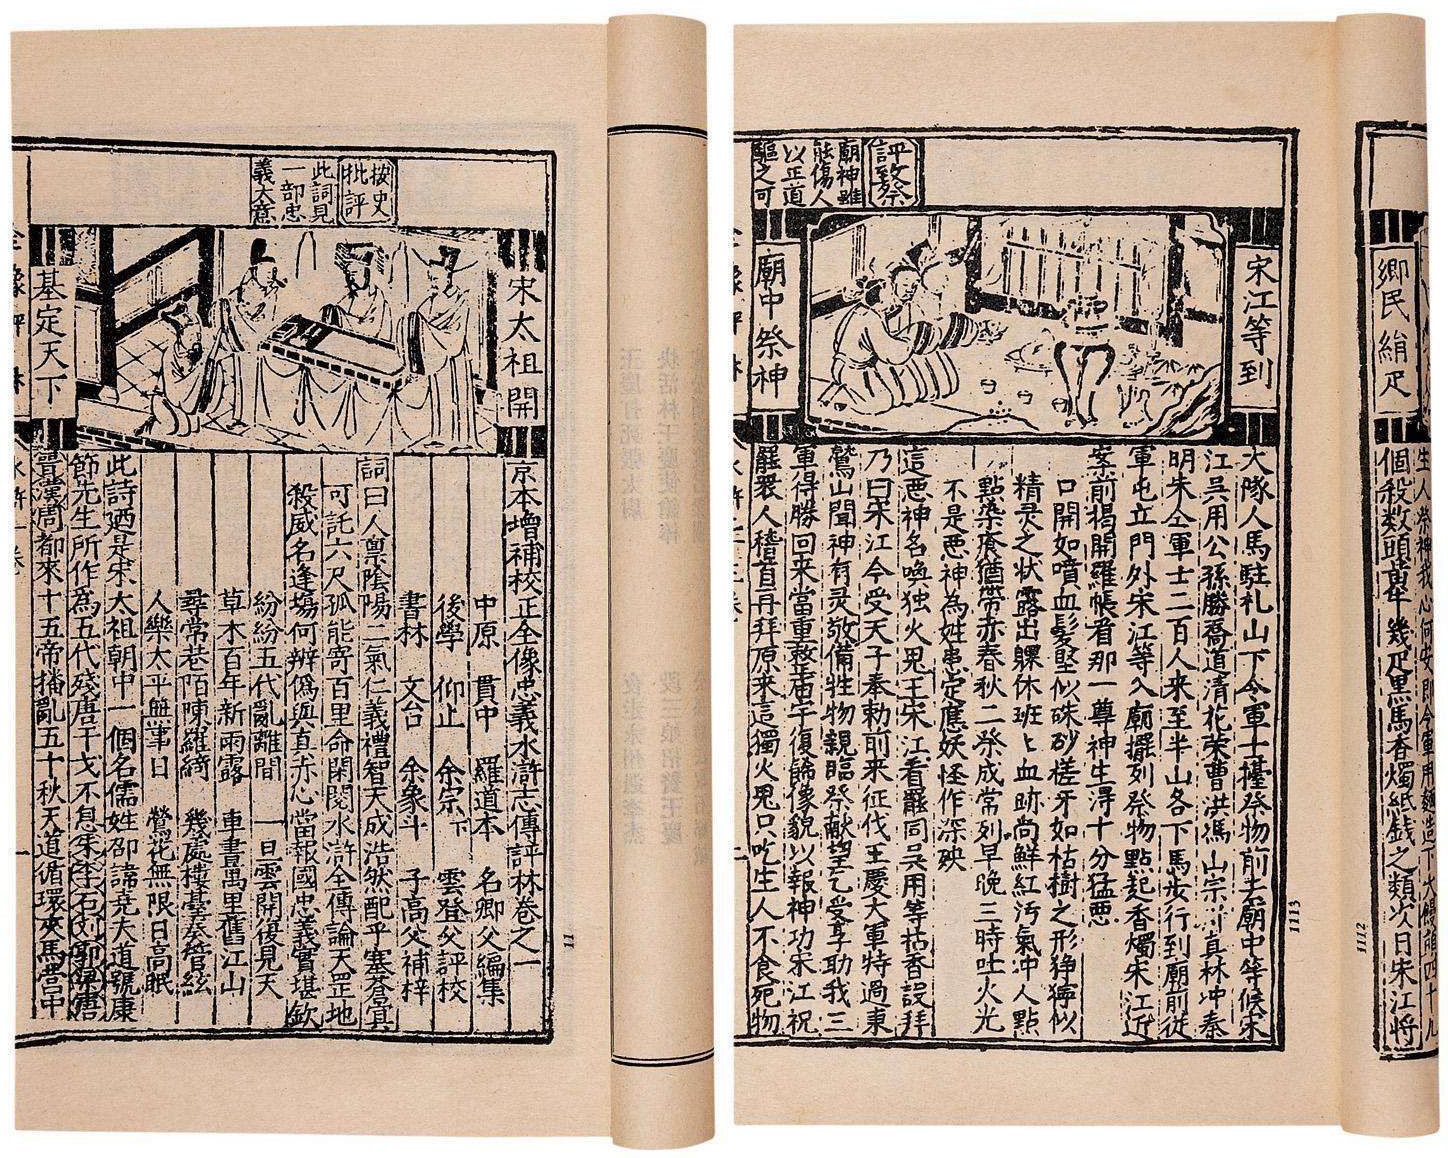 按史批評
此詞見
一部忠
義大意
宋太祖開
基定天下
京本增補校正全像忠義水滸志傳評林卷之一
中原 貫中 羅道本 名卿父編集
後學 仰止 余宗下 雲登父評校
書林 文台 余象斗 子高父補梓
詞曰人禀陰陽二氣仁義禮智天成浩然配乎塞蒼冥
可託六尺孤能寄百里命閑閱水滸全傳論天罡地
殺威名逢塲何辨僞與真赤心當報國忠義實堪欽
紛紛五代亂離間 一旦雲開復見天
草木百年新雨露 車書萬里舊江山
尋常巷陌陳羅綺 幾處樓臺奏管絃
人樂太平無事日 鶯花無限日高眠
此詩廼是宋太祖朝中一個名儒姓邵諱堯夫道號康
節先生所作爲五代殘唐干戈不息朱李石劉郭梁唐
晋漢周都來十五帝播亂五十秋天道循環夾馬營中
全像評林
水滸一卷
一
11
鄉民絹疋
生人祭神我心何安即令軍用麵造下大饅頭四十九
個殺数頭黄牛幾疋黒馬香燭紙錢之類次日宋江將
1112
評致祭
廟神雖
能傷人
以正道
驅之可
宋江等到
廟中祭神
大隊人馬駐札山下令軍士擡祭物前去廟中等候宋
江吳用公孫勝喬道清花荣曹洪馮山宗川真林冲秦
明朱仝軍士二百人来至半山各下馬步行到廟前従
軍屯立門外宋江等入廟擺列祭物點起香燭宋江近
案前揭開羅帳看那一尊神生淂十分猛悪
口開如噴血髪堅似硃砂槎牙如枯樹之形狰獰似
精灵之状露出躶休班上血跡尚鮮紅汚氣冲人點
點染瘡猶帶赤春秋二祭成常列早晚三時吐火光
不是悪神為姓患定應妖怪作深殃
這悪神名唤独火鬼王宋江看罷同吳用等拈香設拜
乃曰宋江今受天子奉勅前来征伐王慶大軍特過東
鷲山聞神有灵敬備牲物親臨祭献望乞受享助我三
軍得勝回来當重整庙宇復飾像貌以報神功宋江祝
罷衆人稽首再拜原来這獨火鬼只吃生人不食死物
全像評林
1113